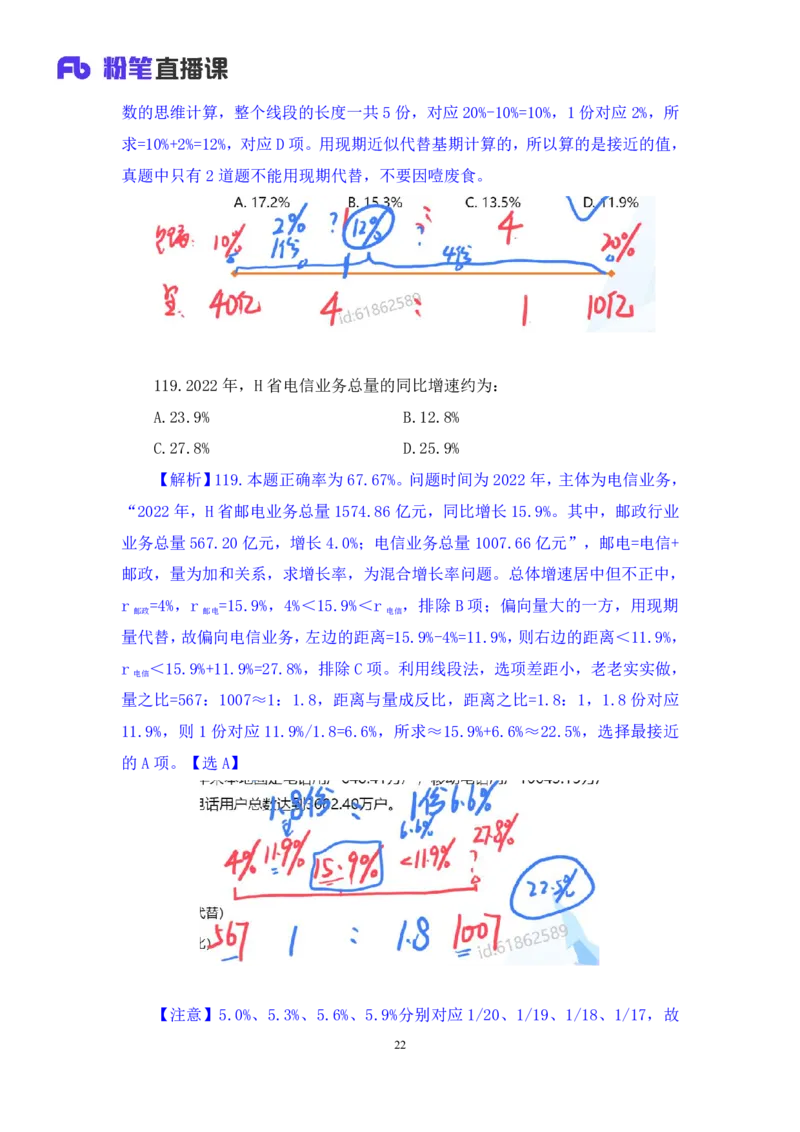 粉笔直播课
数的思维计算，整个线段的长度一共 5 份，对应 20%-10%=10%，1 份对应 2%，所
求=10%+2%=12%，对应 D 项。用现期近似代替基期计算的，所以算的是接近的值，
真题中只有 2 道题不能用现期代替，不要因噎废食。
A. 17.2% B. 15.3% C. 13.5% D. 11.9%
10% 2% ? 12% ? 4 20%
1份 4份
量: 40亿 4 : 1 10亿
id:61862589
119.2022 年，H 省电信业务总量的同比增速约为：
A.23.9% B.12.8%
C.27.8% D.25.9%
【解析】119.本题正确率为 67.67%。问题时间为 2022 年，主体为电信业务，
“2022 年，H 省邮电业务总量 1574.86 亿元，同比增长 15.9%。其中，邮政行业
业务总量 567.20 亿元，增长 4.0%；电信业务总量 1007.66 亿元”，邮电=电信+
邮政，量为加和关系，求增长率，为混合增长率问题。总体增速居中但不正中，
r 邮政=4%，r 邮电=15.9%，4%＜15.9%＜r 电信，排除 B 项；偏向量大的一方，用现期
量代替，故偏向电信业务，左边的距离=15.9%-4%=11.9%，则右边的距离＜11.9%，
r 电信＜15.9%+11.9%=27.8%，排除 C 项。利用线段法，选项差距小，老老实实做，
量之比=567：1007≈1：1.8，距离与量成反比，距离之比=1.8：1，1.8 份对应
11.9%，则 1 份对应 11.9%/1.8=6.6%，所求≈15.9%+6.6%≈22.5%，选择最接近
的 A 项。【选 A】
电话用户总数达到3662.40万户。
1.8份 : 1份 6.6%
6.6%
4% 11.9% 15.9% <11.9% 27.8%
?
22.5%
代替)
比)
567 1 : 1.8 1007
id:61862589
【注意】5.0%、5.3%、5.6%、5.9%分别对应 1/20、1/19、1/18、1/17，故
22